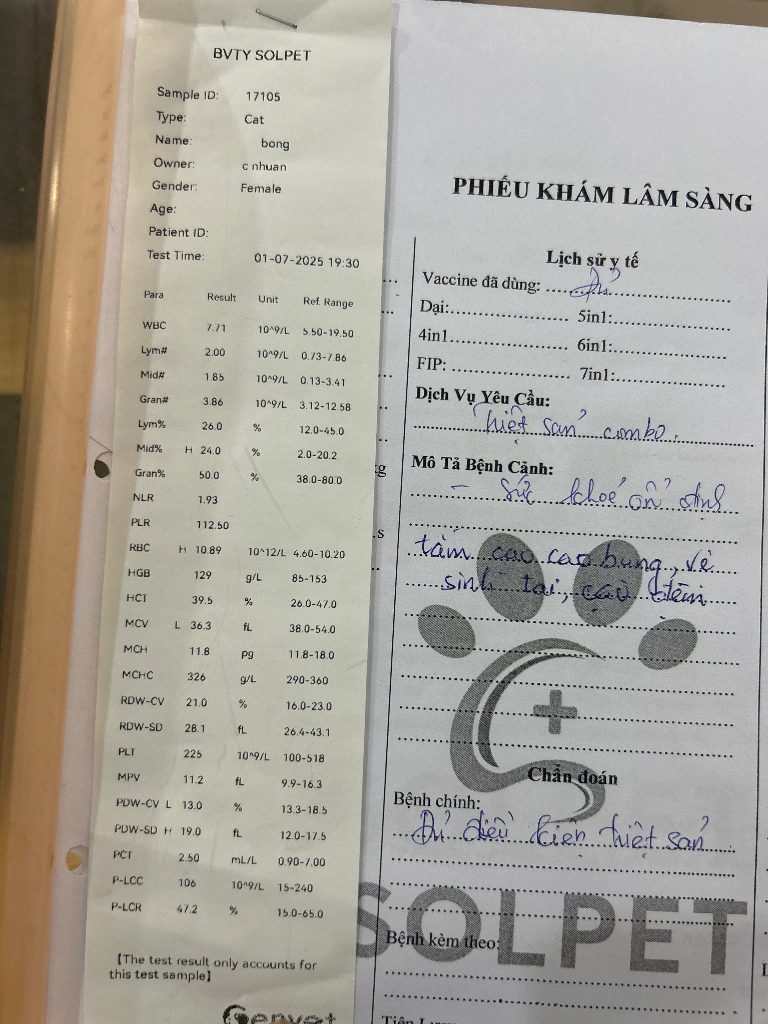 BVTY SOLPET
Sample ID: 17105
Type: Cat
Name: bong
Owner: c nhuan
Gender: Female
Age:
Patient ID:
Test Time: 01-07-2025 19:30
Para Result Unit Ref. Range
WBC 7.71 10^9/L 5.50-19.50
Lym# 2.00 10^9/L 0.73-7.86
Mid# 1.85 10^9/L 0.13-3.41
Gran# 3.86 10^9/L 3.12-12.58
Lym% 26.0 % 12.0-45.0
Mid% H 24.0 % 2.0-20.2
Gran% 50.0 % 38.0-80.0
NLR 1.93
PLR 112.50
RBC H 10.89 10^12/L 4.60-10.20
HGB 129 g/L 85-153
HCT 39.5 % 26.0-47.0
MCV L 36.3 fL 38.0-54.0
MCH 11.8 pg 11.8-18.0
MCHC 326 g/L 290-360
RDW-CV 21.0 % 16.0-23.0
RDW-SD 28.1 fL 26.4-43.1
PLT 225 10^9/L 100-518
MPV 11.2 fL 9.9-16.3
PDW-CV L 13.0 % 13.3-18.5
PDW-SD H 19.0 fL 12.0-17.5
PCT 2.50 mL/L 0.90-7.00
P-LCC 106 10^9/L 15-240
P-LCR 47.2 % 15.0-65.0
【The test result only accounts for
this test sample】
Genvet
PHIẾU KHÁM LÂM SÀNG
Lịch sử y tế
Vaccine đã dùng: đủ
Dại: 5in1:
4in1 6in1:
FIP: 7in1:
Dịch Vụ Yêu Cầu:
Triệt sản combo.
Mô Tả Bệnh Cảnh:
- Sức khoẻ ổn định
tắm cạo cạo bụng, vệ
sinh tai,
Chẩn đoán
Bệnh chính:
Đủ điều kiện triệt sản
SOLPET
Bệnh kèm theo: